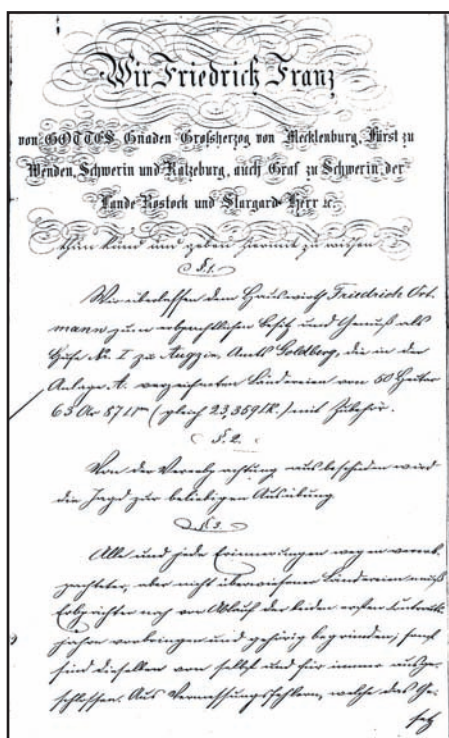 Wir Friedrich Franz
von GOTTES Gnaden Großherzog von Mecklenburg, Fürst zu
Wenden, Schwerin und Ratzeburg, auch Graf zu Schwerin, der
Lande Rostock und Stargard Herr &c.
thun kund und geben hiermit zu wissen
§.1.
Wir überlassen dem Hauswirth Friedrich Ort-
mann zum erbpachtlichen Besitz und Genuß als
Hufe No. I zu Augzin, Amts Goldberg, die in der
Anlage A. verzeichneten Ländereien von 50 Hectar
65 Ar 87 □m (gleich 23,359 □R.) mit Zubehör.
§.2.
Von der Vererbpachtung ausbeschieden wird
die Jagd zur beliebigen Ausübung
§3.
Alle und jede Erinnerungen wegen vererb-
pachteter, aber nicht überwiesener Ländereien muß
Erbpächter noch vor Ablauf der beiden ersten
jahre vorbringen und gehörig begründen; sonst
sind dieselben von selbst und für immer ausge-
schlossen. Aus Vermessungsfehlern, welche das Ge-
setz